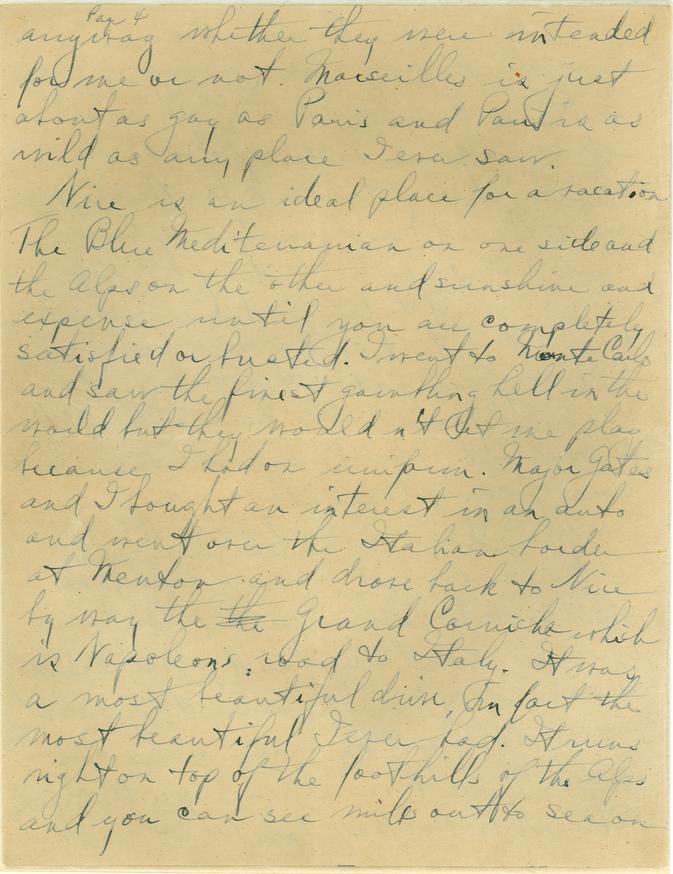 Page 4
anyway whether they were intended
for me or not. Marseilles is just
about as gay as Paris and Paris is as
wild as any place I ever saw.
Nice is an ideal place for a vacation
The Blue Mediteranian on one side and
the Alps on the other and sunshine and
expense until you are completely
satisfied or busted. I went to Monte Carlo
and saw the finest gambling hell in the
world but they wouldn't let me play
because I had on uniform. Major Gates
and I bought an interest in an auto
and went over the Italian border
at Menton and drove back to Nice
by way the the Grand Corniche which
is Napoleons road to Italy. It was
a most beautiful drive, In fact the
most beautiful I ever had. It runs
right on top of the foothills of the Alps
and you can see miles out to sea on